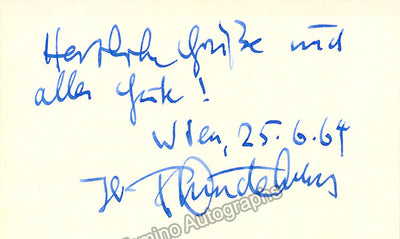 Herzliche Grüße und
alles Gute!
Wien, 25.6.64
Ihr
Tamino Autographs